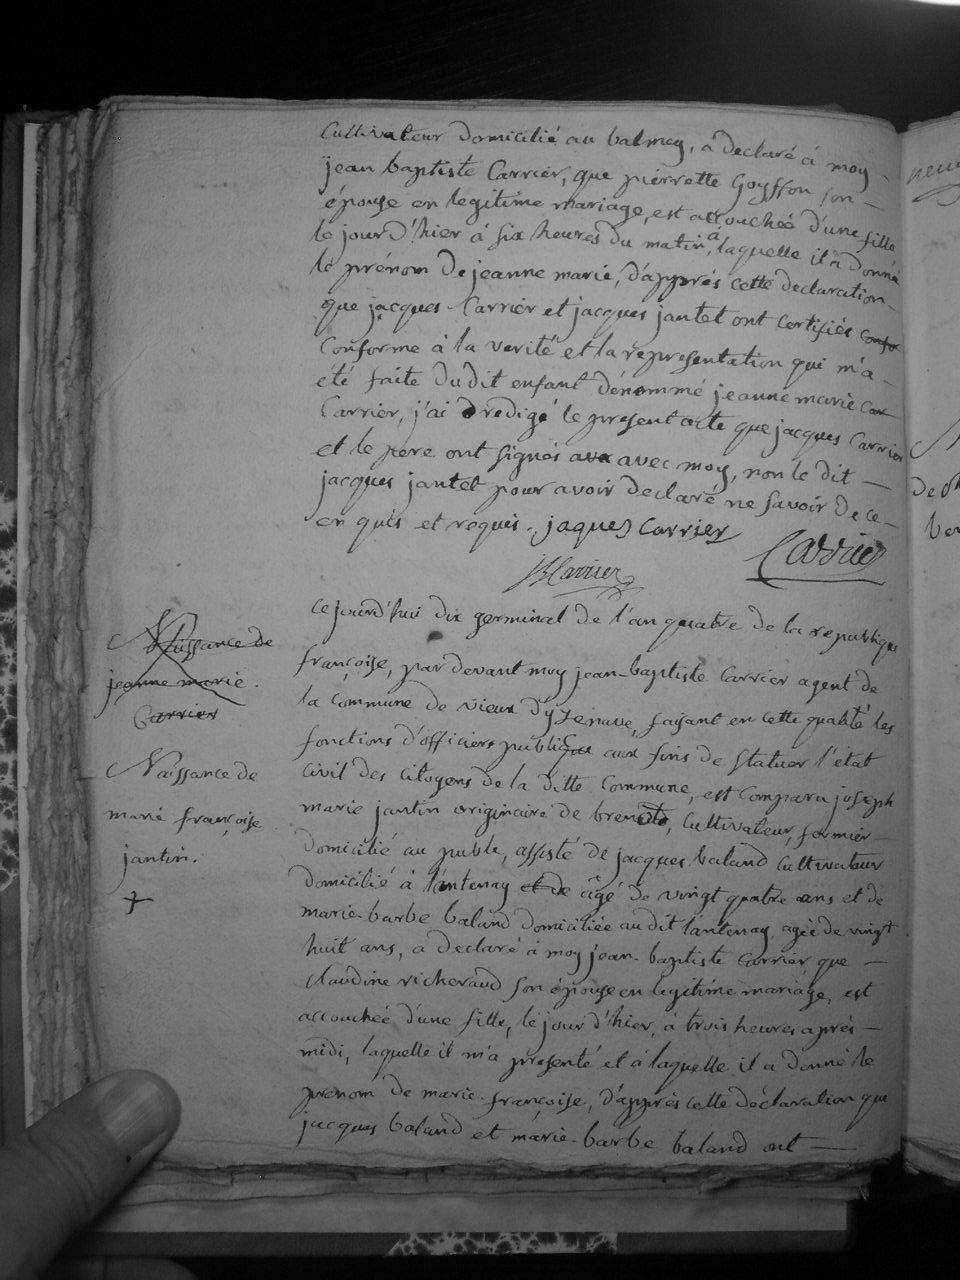 Cultivateur domicilié au balmey, a declaré à moy
jean baptiste Carrier, que pierrette Goyffon son
épouse en legitime mariage, est accouchée d'une fille
le jour d'hier à six heures du matin, à laquelle il a donné
le prénom de jeanne marie, d'apprés cette declaration
que jacques Carrier et jacques jantet ont certifiés confo
conforme à la verité et la representation qui m'a
eté faite dudit enfant dénommé jeanne marie Car
Carrier, j'ai redigé le present acte que jacques Carrier
et le pere ont signés avec moy, non le dit
jacques jantet pour avoir declaré ne savoir de ce
enquis et requis. jaques Carrier
Carrier
JB Carrier
ce jourd'hui dix germinal de l'an quatre de la republique
françoise, par devant moy jean-baptiste Carrier agent de
la commune de vieux d'yzenave, faisant en cette qualité les
fonctions d'officier public aux fins de statuer l'état
Civil des citoyens de la ditte Commune, est comparu joseph
marie jantin originaire de , Cultivateur, fermier
domicilié au puble, assisté de jacques baland Cultivateur
domicilié à lantenay et de âgé de vingt quatre ans et de
marie-barbe baland domiciliée au dit lantenay agée de vingt
huit ans, a declaré à moy jean-baptiste Carrier que
Claudine richeraud son épouse en legitime mariage, est
accouchée d'une fille, le jour d'hier, à trois heures aprés
midi, laquelle il m'a presenté et à laquelle il a donné le
prenom de marie-françoise, d'apprés cette déclaration que
jacques baland et marie-barbe baland ont
Naissance de
jeanne marie
Carrier
Naissance de
marie françoise
jantin.
+